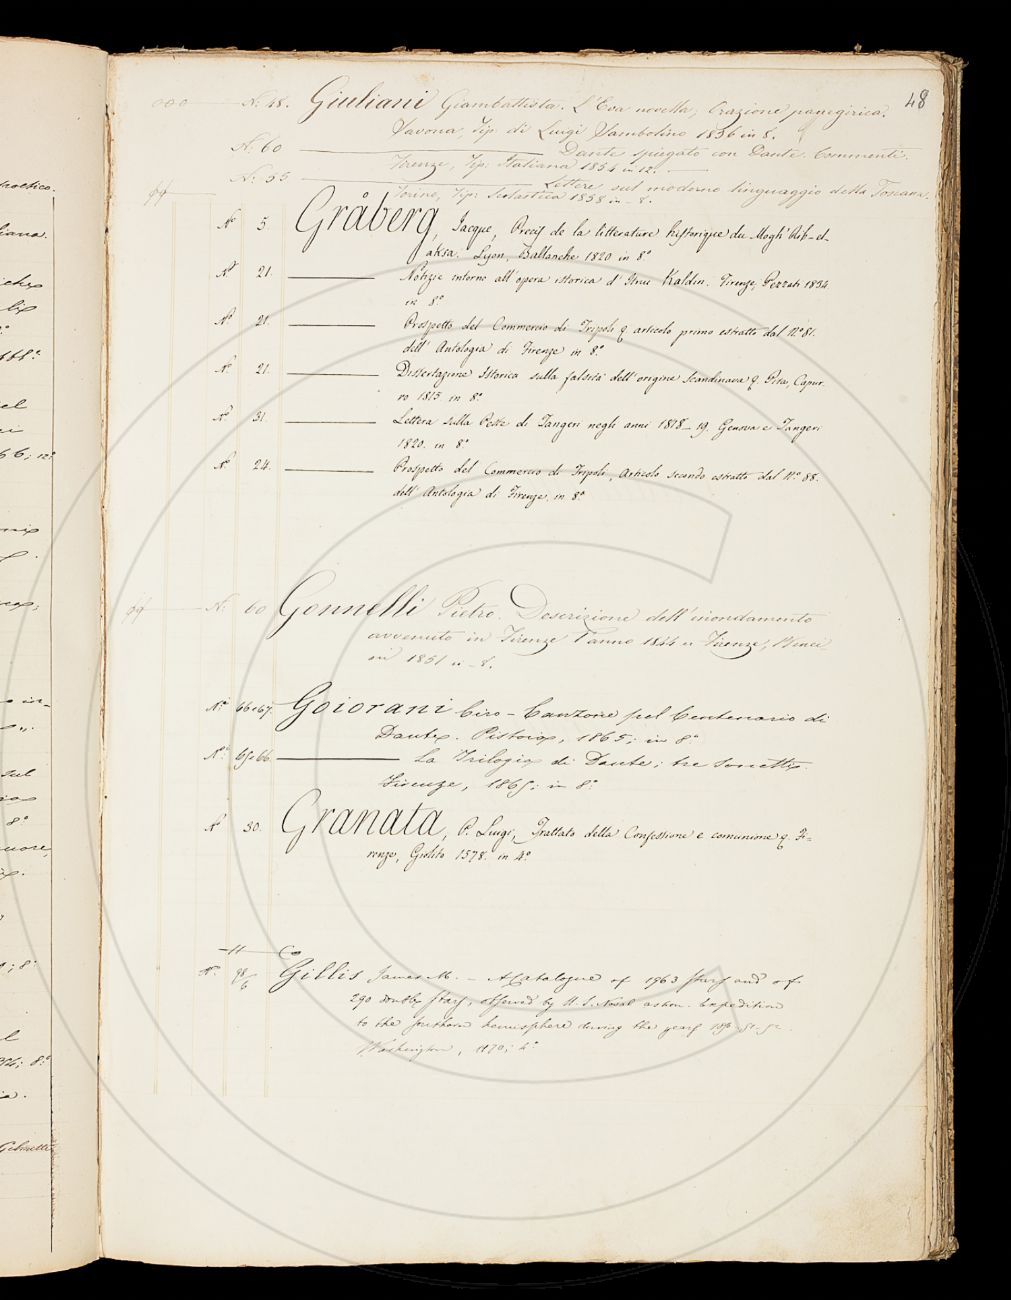 48
N. 48. Giuliani Giambattista. L'Eva novella, Orazione panegirica.
Savona, Tip. di Luigi Sambolino 1836 in 8.
N. 60 Dante spiegato con Dante. Commenti.
Firenze, Tip. Italiana 1854 in 12.
N. 55 Lettere sul moderno linguaggio della Toscana.
Torino, Tip. Scolastica 1858 in 8.
N.° 5. Gråberg, Jacque, Precis de la litterature historique du Mogh'Rib-el-
aksa. Lyon, Ballanche 1820 in 8°
N.° 21. Notizie intorno all'opera istorica d'Ibnu Kaldun. Firenze, Pezzati 1834
in 8°
N.° 21. Prospetto del Commercio di Tripoli articolo primo estratto dal N.° 81.
dell'Antologia di Firenze in 8.°
N.° 21. Dissertazione Istorica sulla falsità dell'origine Scandinava Pisa, Capur-
ro 1815 in 8°
N.° 31. Lettera sulla Peste di Tangeri negli anni 1818-19. Genova e Tangeri
1820. in 8°
N.° 24. Prospetto del Commercio di Tripoli, Articolo secondo estratto dal N.° 88.
dell'Antologia di Firenze. in 8.°
N. 60 Gonnelli Pietro. Descrizione dell'inondamento
avvenuto in Firenze l'anno 1844
1851 in 8.
N.° 66-67. Goiorani Ciro - Canzone pel Centenario di
Dante. Pistoia, 1865; in 8°
N.° 65-66. La Trilogia di Dante; tre sonetti.
Firenze, 1865; in 8°
N° 30. Granata, P. Luigi, Trattato della Confessione e comunione Fi-
renze, Giolito 1578. in 4°
N.° 98/6 Gillis James M. - A Catalogue of 1963 stars and of
290 double stars, observed by U. S. Naval astron. Expedition
to the southern hemisphere during the years
Washington, 1870; 4°